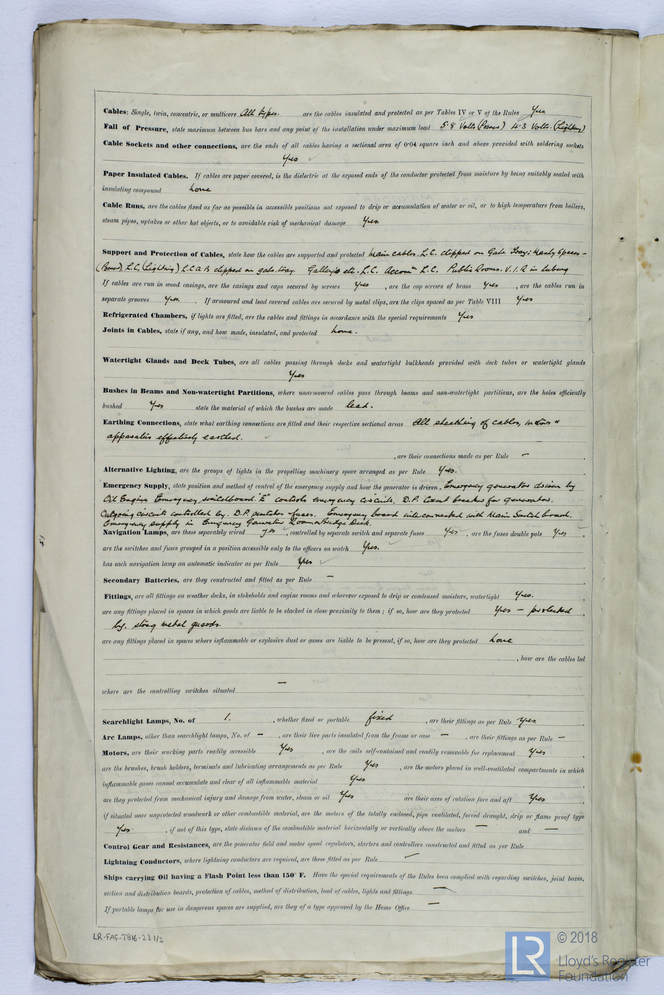 Cables: Single, twin, concentric, or multicore All types. are the cables insulated and protected as per Tables IV or V of the Rules Yes
Fall of Pressure, state maximum between bus bars and any point of the installation under maximum load 5·8 Volts (Power) 4·3 Volts. (Lighting)
Cable Sockets and other connections, are the ends of all cables having a sectional area of 0·04 square inch and above provided with soldering sockets
Yes
Paper Insulated Cables. If cables are paper covered, is the dielectric at the exposed ends of the conductor protected from moisture by being suitably sealed with
insulating compound none
Cable Runs, are the cables fixed as far as possible in accessible positions not exposed to drip or accumulation of water or oil, or to high temperature from boilers,
steam pipes, uptakes or other hot objects, or to avoidable risk of mechanical damage Yes
Support and Protection of Cables, state how the cables are supported and protected Main cables. L.C. clipped on Gate Tray;
(Power) L.C. (Lighting) L.C.A.B. clipped on gate tray. Galleys etc. L.C. Accom L.C. Public Rooms. V.I.R in tubing
If cables are run in wood casings, are the casings and caps secured by screws Yes , are the cap screws of brass Yes , are the cables run in
separate grooves Yes . If armoured and lead covered cables are secured by metal clips, are the clips spaced as per Table VIII Yes
Refrigerated Chambers, if lights are fitted, are the cables and fittings in accordance with the special requirements Yes
Joints in Cables, state if any, and how made, insulated, and protected none.
Watertight Glands and Deck Tubes, are all cables passing through decks and watertight bulkheads provided with deck tubes or watertight glands
Yes
Bushes in Beams and Non-watertight Partitions, where unarmoured cables pass through beams and non-watertight partitions, are the holes efficiently
bushed Yes state the material of which the bushes are made lead.
Earthing Connections, state what earthing connections are fitted and their respective sectional areas All sheathing of cables, motors &
apparatus effectively earthed.
, are their connections made as per Rule –
Alternative Lighting, are the groups of lights in the propelling machinery space arranged as per Rule Yes.
Emergency Supply, state position and method of control of the emergency supply and how the generator is driven. Emergency generator driven by
Oil Engine Emergency switchboard "E" controls emergency circuits. D.P. Circuit breaker for generator.
Outgoing circuits controlled by D.P. switches & fuses. Emergency board interconnected with Main Switchboard.
Emergency supply in Emergency Generator Room Bridge Deck.
Navigation Lamps, are these separately wired yes , controlled by separate switch and separate fuses Yes , are the fuses double pole Yes ,
are the switches and fuses grouped in a position accessible only to the officers on watch Yes.
has each navigation lamp an automatic indicator as per Rule Yes
Secondary Batteries, are they constructed and fitted as per Rule –
Fittings, are all fittings on weather decks, in stokeholds and engine rooms and wherever exposed to drip or condensed moisture, watertight Yes.
are any fittings placed in spaces in which goods are liable to be stacked in close proximity to them; if so, how are they protected Yes – protected
by strong metal guards
are any fittings placed in spaces where inflammable or explosive dust or gases are liable to be present, if so, how are they protected none
, how are the cables led
where are the controlling switches situated –
Searchlight Lamps, No. of 1. , whether fixed or portable fixed , are their fittings as per Rule Yes
Arc Lamps, other than searchlight lamps, No. of – , are their live parts insulated from the frame or case – , are their fittings as per Rule –
Motors, are their working parts readily accessible Yes , are the coils self-contained and readily removable for replacement Yes ,
are the brushes, brush holders, terminals and lubricating arrangements as per Rule Yes , are the motors placed in well-ventilated compartments in which
inflammable gases cannot accumulate and clear of all inflammable material Yes ,
are they protected from mechanical injury and damage from water, steam or oil Yes are their axes of rotation fore and aft Yes ,
if situated near unprotected woodwork or other combustible material, are the motors of the totally enclosed, pipe ventilated, forced draught, drip or flame proof type
Yes , if not of this type, state distance of the combustible material horizontally or vertically above the motors – and –
Control Gear and Resistances, are the generator field and motor speed regulators, starters and controllers constructed and fitted as per Rule
Lightning Conductors, where lightning conductors are required, are these fitted as per Rule –
Ships carrying Oil having a Flash Point less than 150° F. Have the special requirements of the Rules been complied with regarding switches, joint boxes,
section and distribution boards, protection of cables, method of distribution, lead of cables, lights and fittings –
If portable lamps for use in dangerous spaces are supplied, are they of a type approved by the Home Office –
LR-FAF-T816-23 1/2
LR
© 2018
Lloyd's Register
Foundation